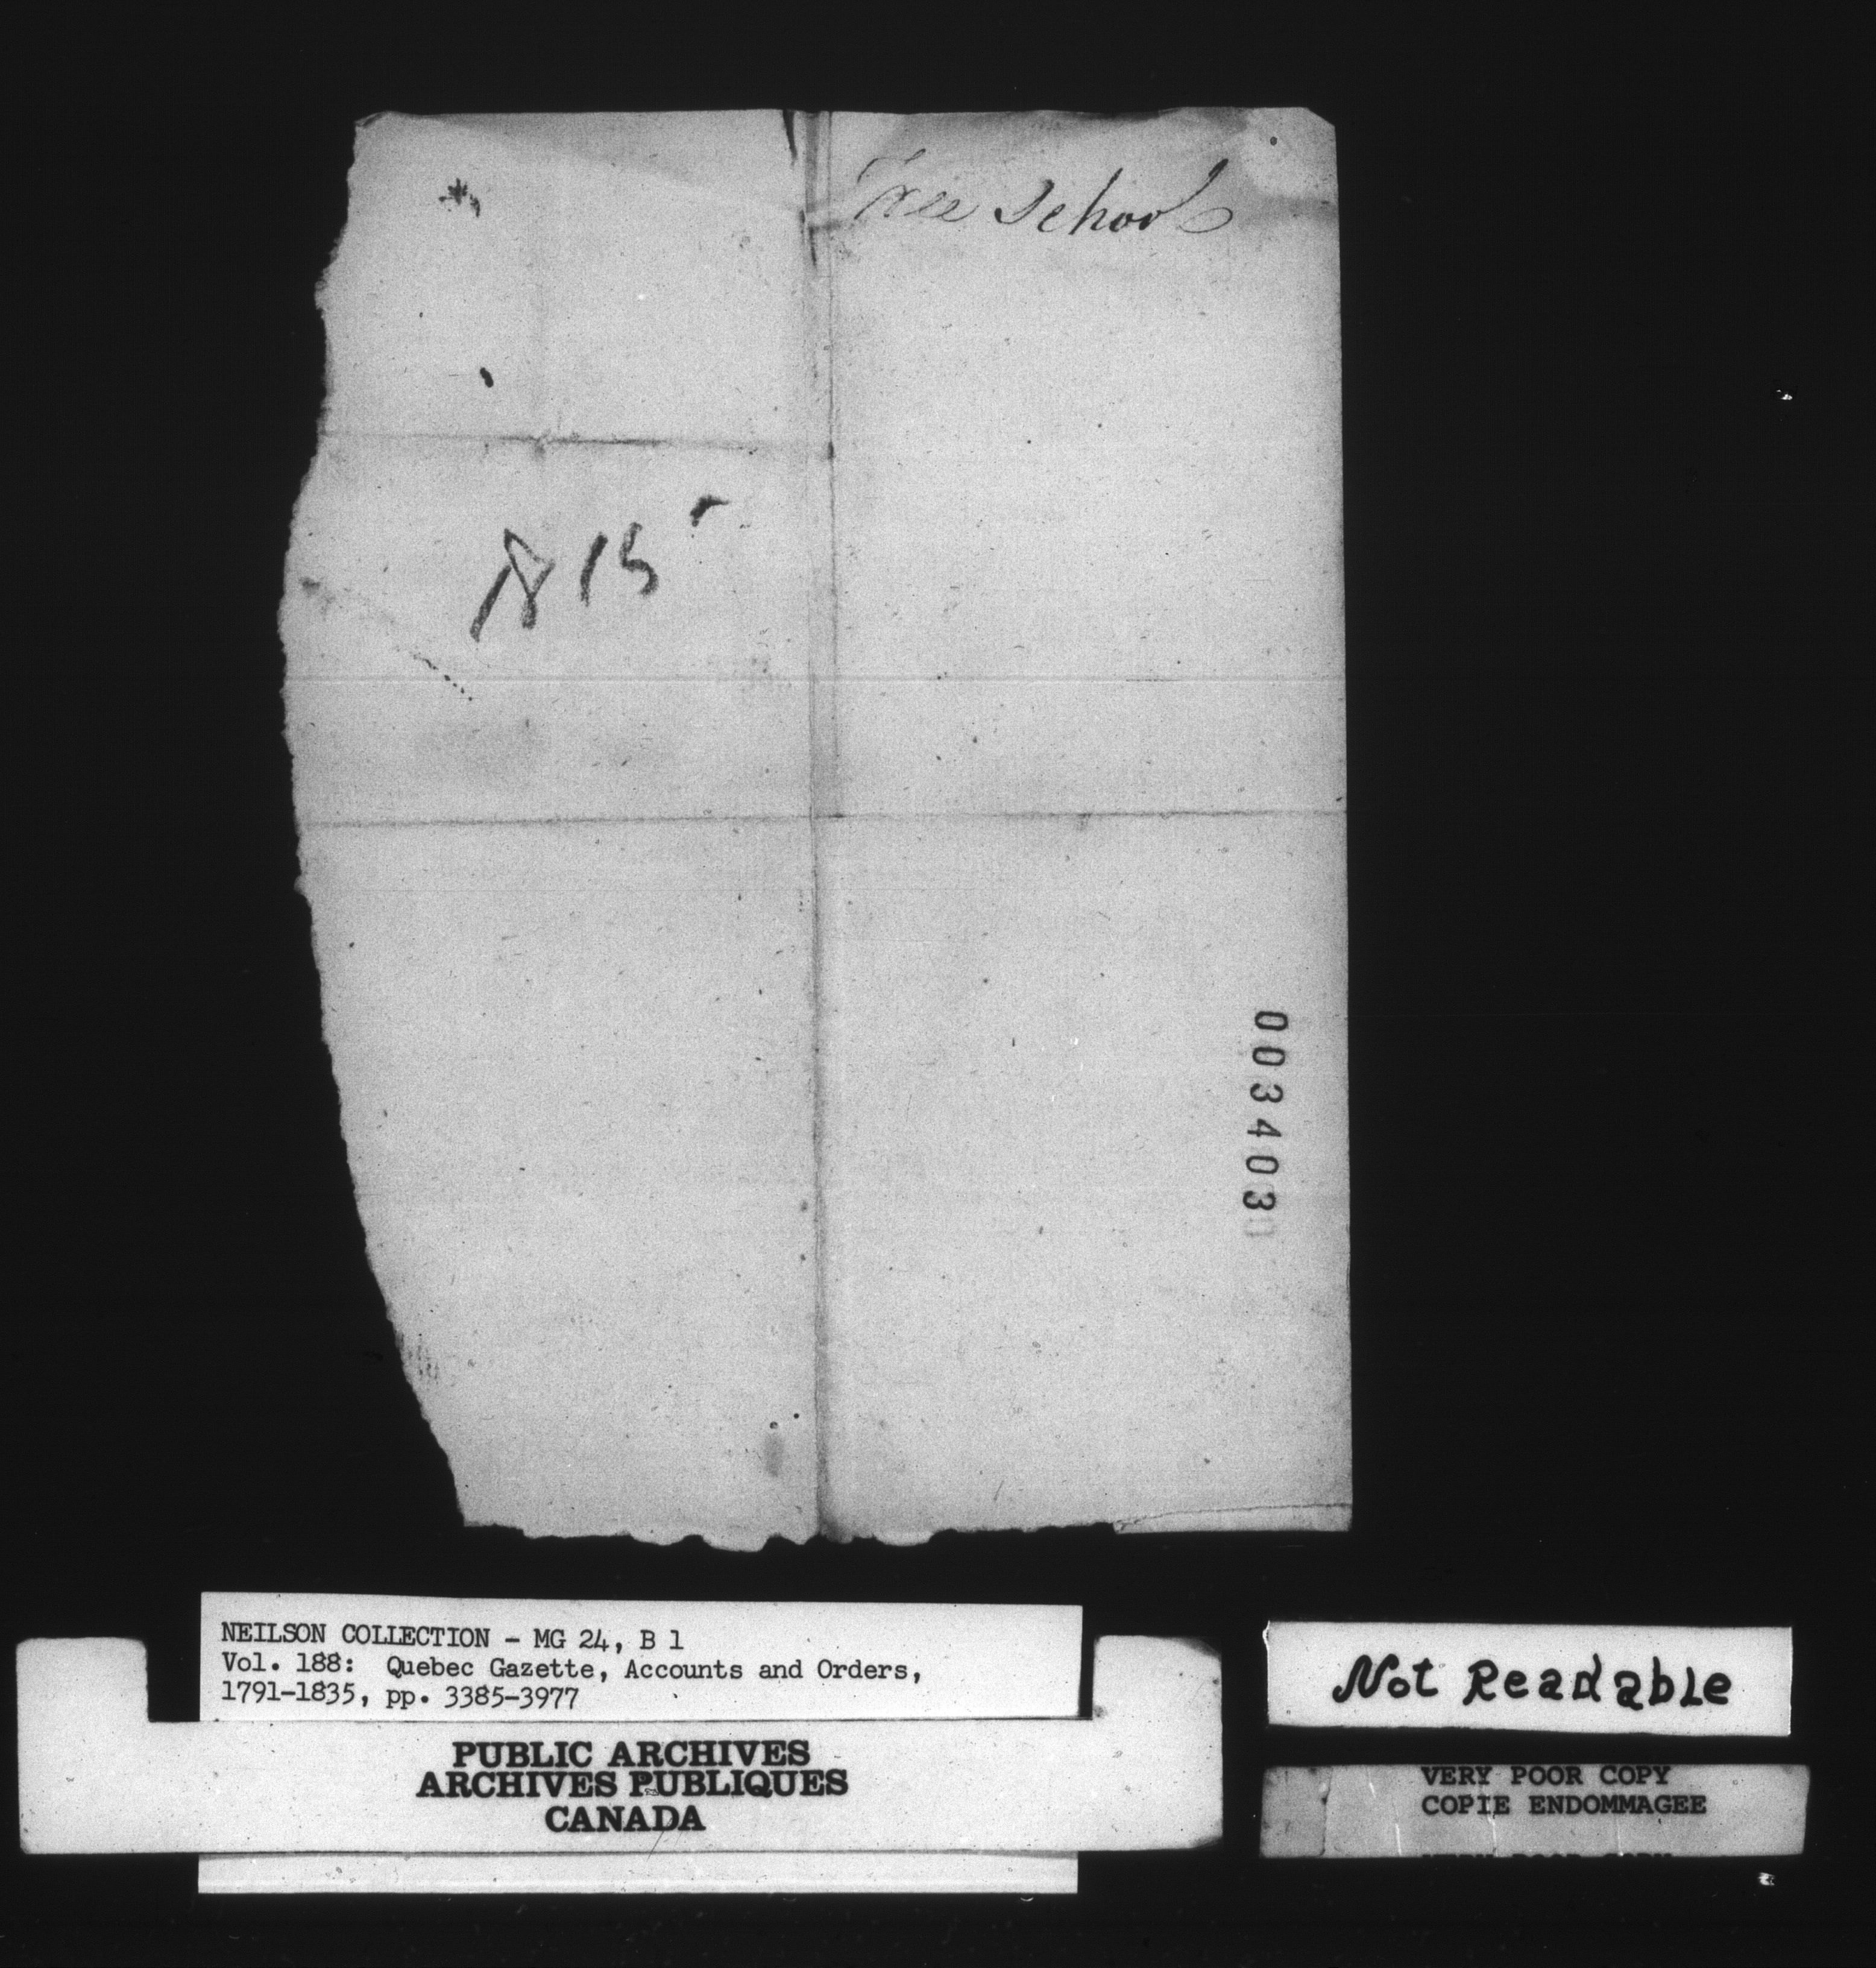 Free School
N 15
003403
NEILSON COLLECTION - MG 24, B 1
Vol. 188: Quebec Gazette, Accounts and Orders,
1791-1835, pp. 3385-3977
PUBLIC ARCHIVES
ARCHIVES PUBLIQUES
CANADA
Not Readable
VERY POOR COPY
COPIE ENDOMMAGEE